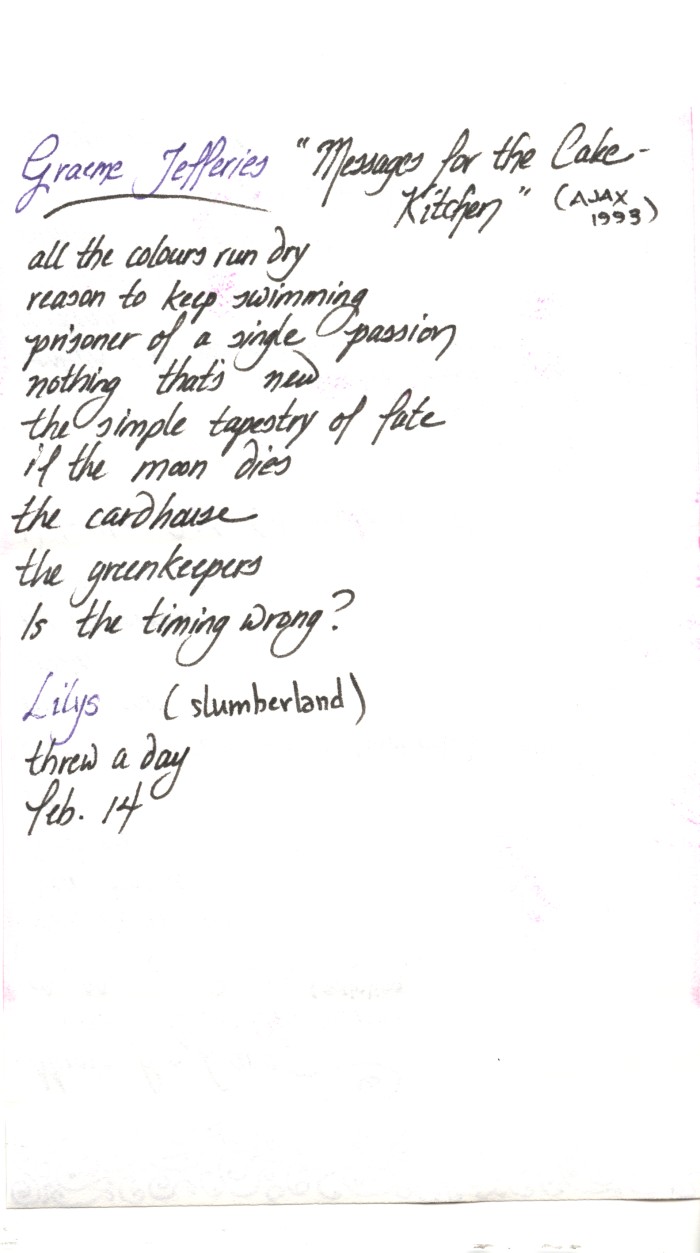 Graeme Jefferies "Messages for the Cake-
Kitchen" (AJAX
1993)
all the colours run dry
reason to keep swimming
prisoner of a single passion
nothing that's new
the simple tapestry of fate
if the moon dies
the cardhouse
the greenkeepers
Is the timing wrong?
Lilys (slumberland)
threw a day
feb. 14